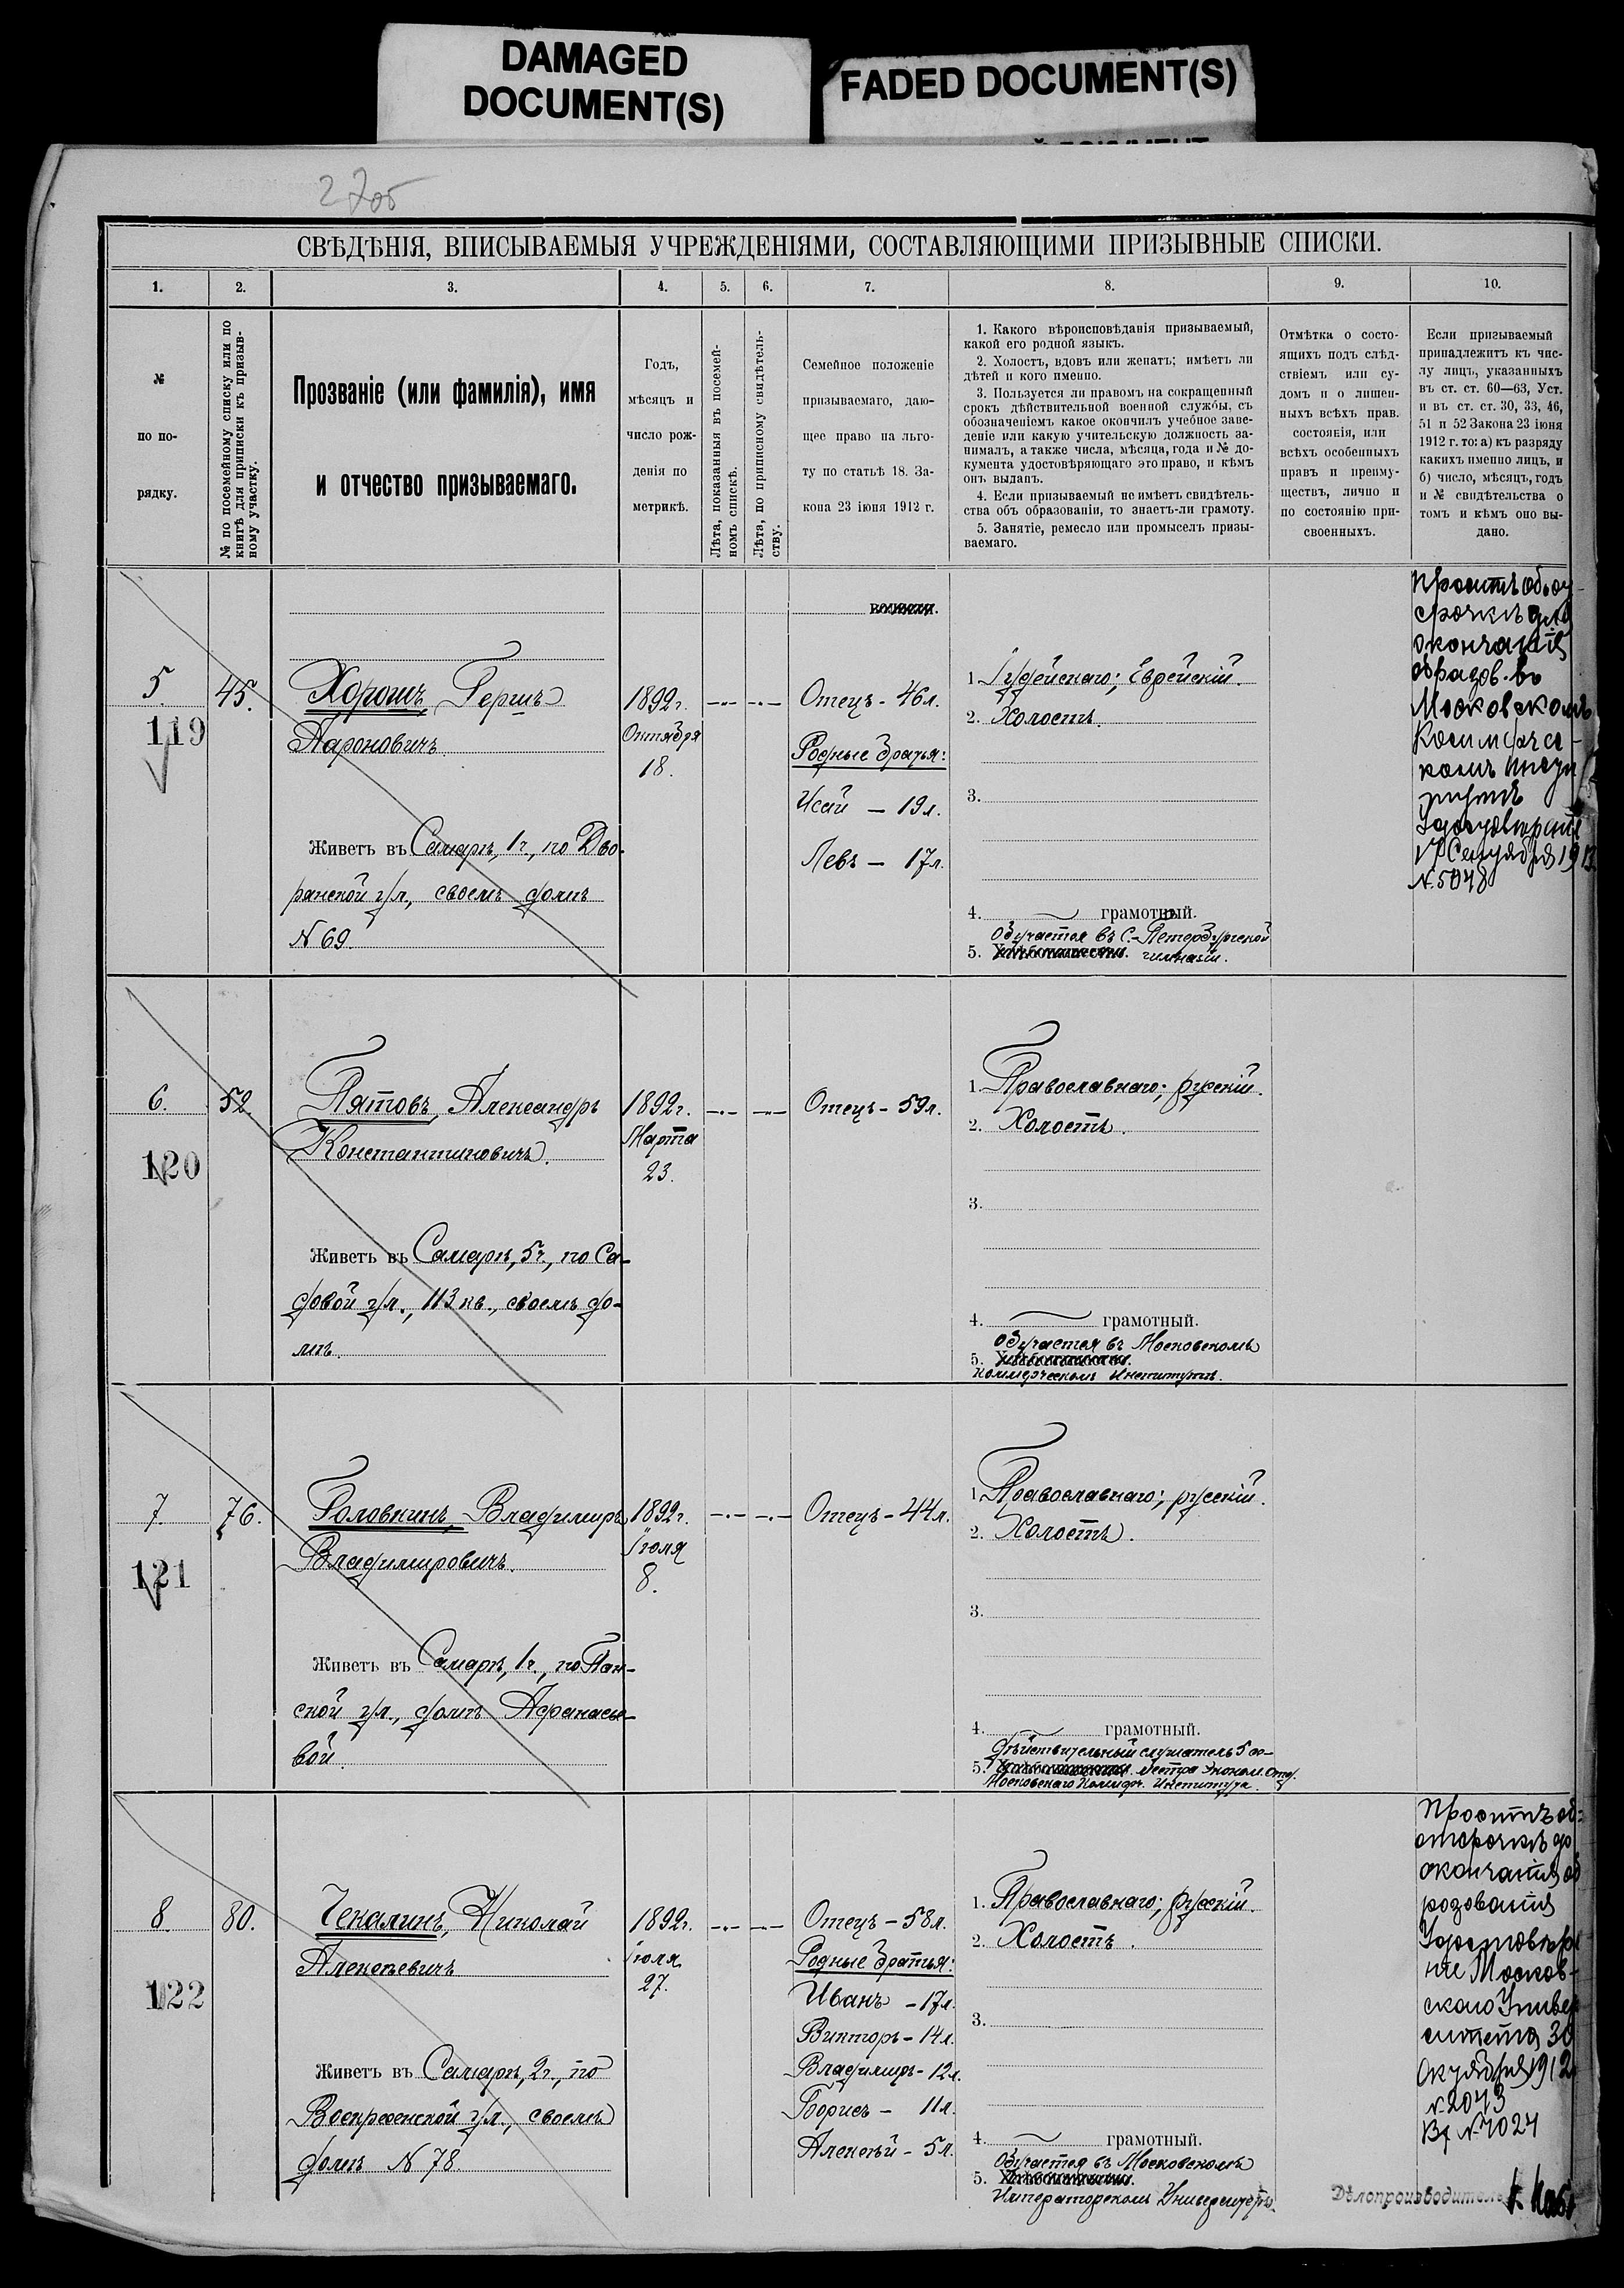 DAMAGED
DOCUMENT(S)
FADED DOCUMENT(S)
27об
СВѢДѢНІЯ, ВПИСЫВАЕМЫЯ УЧРЕЖДЕНІЯМИ, СОСТАВЛЯЮЩИМИ ПРИЗЫВНЫЕ СПИСКИ.
1. 2. 3. 4. 5. 6. 7. 8. 9. 10.
№
по по-
рядку.
№ по посемейному списку или по
книгѣ для приписки къ призыв-
ному участку.
Прозваніе (или фамилія), имя
и отчество призываемаго.
Годъ,
мѣсяцъ и
число рож-
денія по
метрикѣ.
Лѣта, показанныя въ посемей-
номъ спискѣ.
Лѣта, по приписному свидѣтель-
ству.
Семейное положеніе
призываемаго, даю-
щее право на льго-
ту по статьѣ 18. За-
кона 23 іюня 1912 г.
1. Какого вѣроисповѣданія призываемый,
какой его родной языкъ.
2. Холостъ, вдовъ или женатъ; имѣетъ ли
дѣтей и кого именно.
3. Пользуется ли правомъ на сокращенный
срокъ дѣйствительной военной службы, съ
обозначеніемъ какое окончилъ учебное заве-
деніе или какую учительскую должность за-
нималъ, а также числа, мѣсяца, года и № до-
кумента удостовѣряющаго это право, и кѣмъ
онъ выданъ.
4. Если призываемый не имѣетъ свидѣтель-
ства объ образованіи, то знаетъ-ли грамоту.
5. Занятіе, ремесло или промыселъ призы-
ваемаго.
Отмѣтка о состо-
ящихъ подъ слѣд-
ствіемъ или су-
домъ и о лишен-
ныхъ всѣхъ прав.
состоянія, или
всѣхъ особенныхъ
правъ и преиму-
ществъ, лично и
по состоянію при-
своенныхъ.
Если призываемый
принадлежитъ къ чис-
лу лицъ, указанныхъ
въ ст. ст. 60—63, Уст.
и въ ст. ст. 30, 33, 46,
51 и 52 Закона 23 іюня
1912 г. то: а) къ разряду
какихъ именно лицъ, и
б) число, мѣсяцъ, годъ
и № свидѣтельства о
томъ и кѣмъ оно вы-
дано.
5.
119
45.
Хорошъ, Гершъ
Аароновичъ
Живетъ въ Самарѣ, 1ч., по Дво-
рянской ул., своемъ домѣ
N 69.
1892г.
Октября
18.
Отецъ - 46л.
Родные братья:
Исай — 19л.
Левъ — 17л.
1. Іудейскаго; Еврейскій.
2. Холостъ.
3.
4. грамотный.
Обучается въ С.-Петербургской
5. гимназіи.
Проситъ объ от-
срочкѣ для
окончанія
образов. въ
Московскомъ
Коммерчес-
комъ Инсти
тутѣ
Удостовѣреніе
Сентября 1912
N. 5048
6.
120
52.
Пятовъ, Александръ
Константиновичъ.
Живетъ въ Самарѣ, 5ч., по Са-
довой ул., 113 кв., своемъ до-
мѣ.
1892г.
Марта
23.
Отецъ - 59л.
1. Православнаго; русскій.
2. Холостъ.
3.
4. грамотный.
Обучается въ Московскомъ
5.
Коммерческомъ Институтѣ.
7.
121
76.
Головкинъ, Владимиръ
Владимировичъ.
Живетъ въ Самарѣ, 1ч., по Пан-
ской ул., домѣ Афанасье-
вой.
1892г.
Іюля
8.
Отецъ - 44л.
1. Православнаго; русскій.
2. Холостъ.
3.
4. грамотный.
Дѣйствительный слушатель 5 се-
5. местра Эконом. Отд.
Московскаго Коммерч. Института.
8.
122
80.
Чекалинъ, Николай
Алексѣевичъ
Живетъ въ Самарѣ, 2ч., по
Воскресенской ул., своемъ
домѣ N 78.
1892г.
Іюля
27.
Отецъ - 58л.
Родные братья:
Иванъ - 17л.
Викторъ - 14л.
Владимиръ - 12л.
Борисъ - 11л.
Алексѣй - 5л.
1. Православнаго; русскій.
2. Холостъ.
3.
4. грамотный.
Обучается въ Московскомъ
5.
Императорскомъ Университетѣ.
Проситъ объ
отсрочкѣ до
окончанія об
разованія
Удостовѣре
ніе Москов-
скаго Универ
ситета 30
Октября 1912
N 2043
Вх N 7024
Дѣлопроизводитель